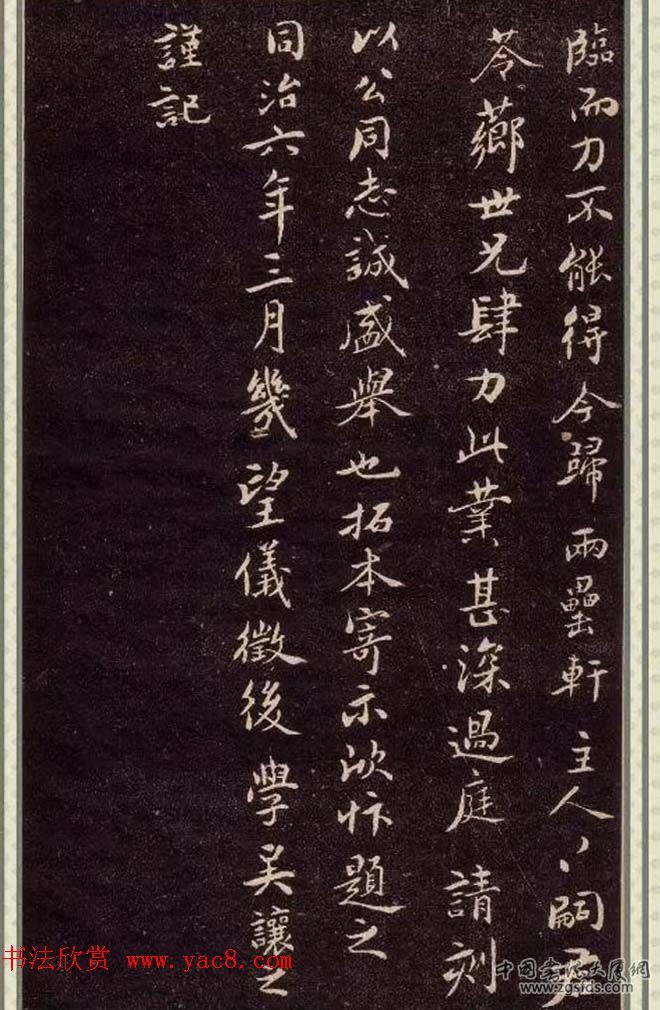 臨而力不能得今歸兩罍軒主人丷嗣君
苓薌世兄肆力此業甚深過庭請刻
以公同志誠盛舉也拓本寄示欣忭題之
同治六年三月幾望儀徵後學吳讓之
謹記
书法欣赏 www.yac8.com
中国书法大展网
www.zgsfds.com